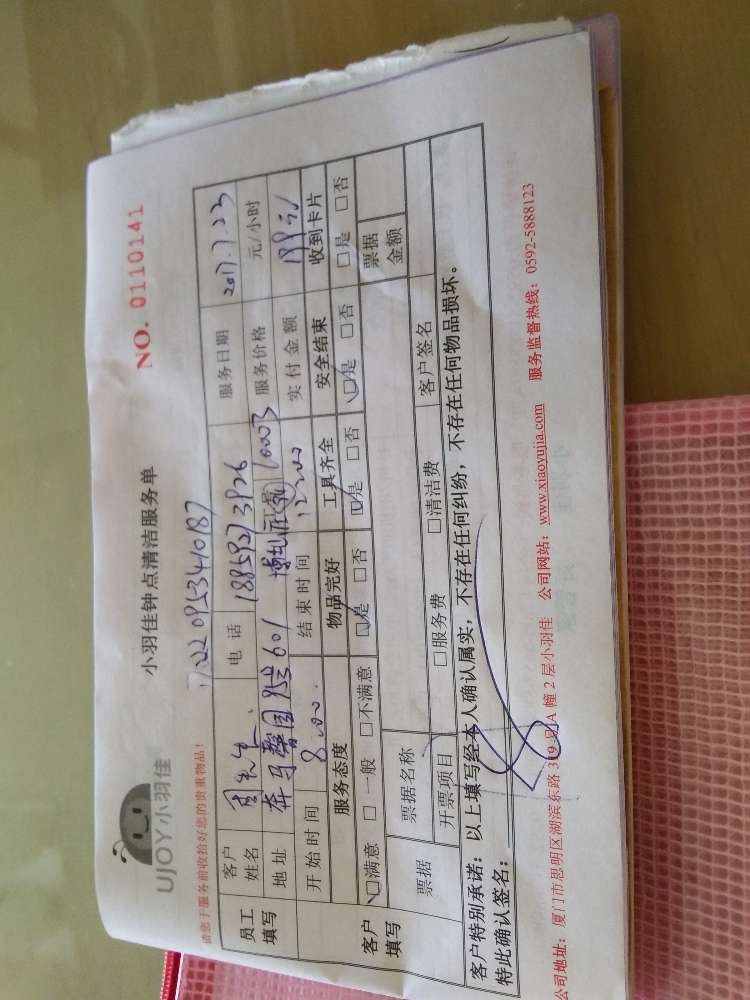 UJOY小羽佳
小羽佳钟点清洁服务单
NO. 0110141
请您于服务前收拾好您的贵重物品!
员工填写
客户姓名 周先生 电话 服务日期 2017.7.23
地址 601 服务价格 元/小时
开始时间 8:00 结束时间 12:00 实付金额 199元
客户填写
服务态度 物品完好 工具齐全 安全结束 收到卡片
☑满意 □一般 □不满意 ☑是 □否 ☑是 □否 ☑是 □否 □是 □否
票据 票据名称 票据金额
开票项目 □服务费 □清洁费 客户签名
客户特别承诺:以上填写经本人确认属实,不存在任何纠纷,不存在任何物品损坏。
特此确认签名:
公司地址:厦门市思明区湖滨东路319号A幢2层小羽佳 公司网站:www.xiaoyujia.com 服务监督热线:0592-5888123